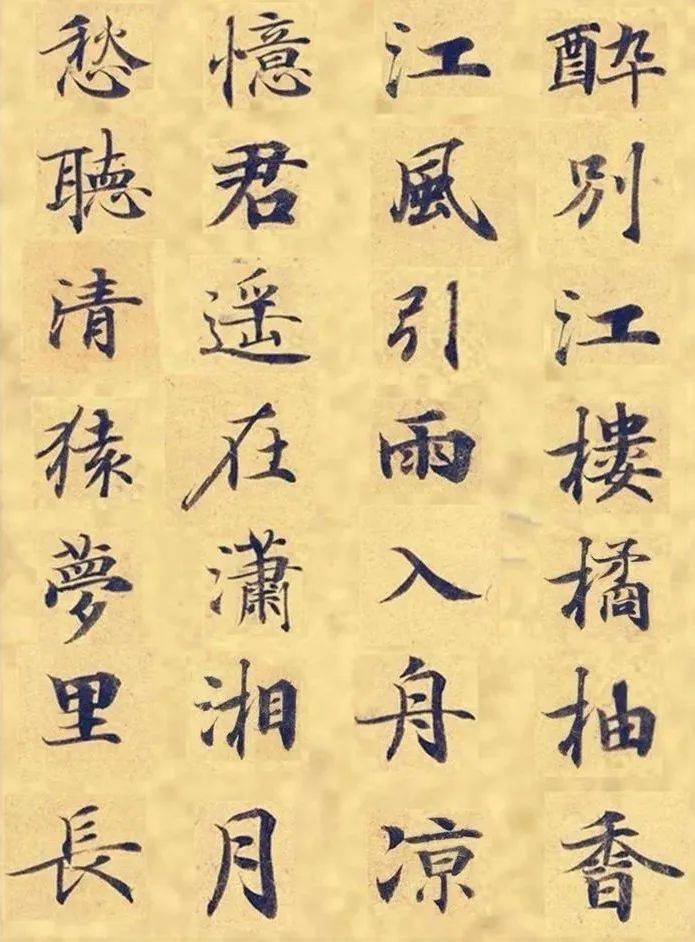 醉別江樓橘柚香
江風引雨入舟涼
憶君遥在瀟湘月
愁聽清猿夢里長